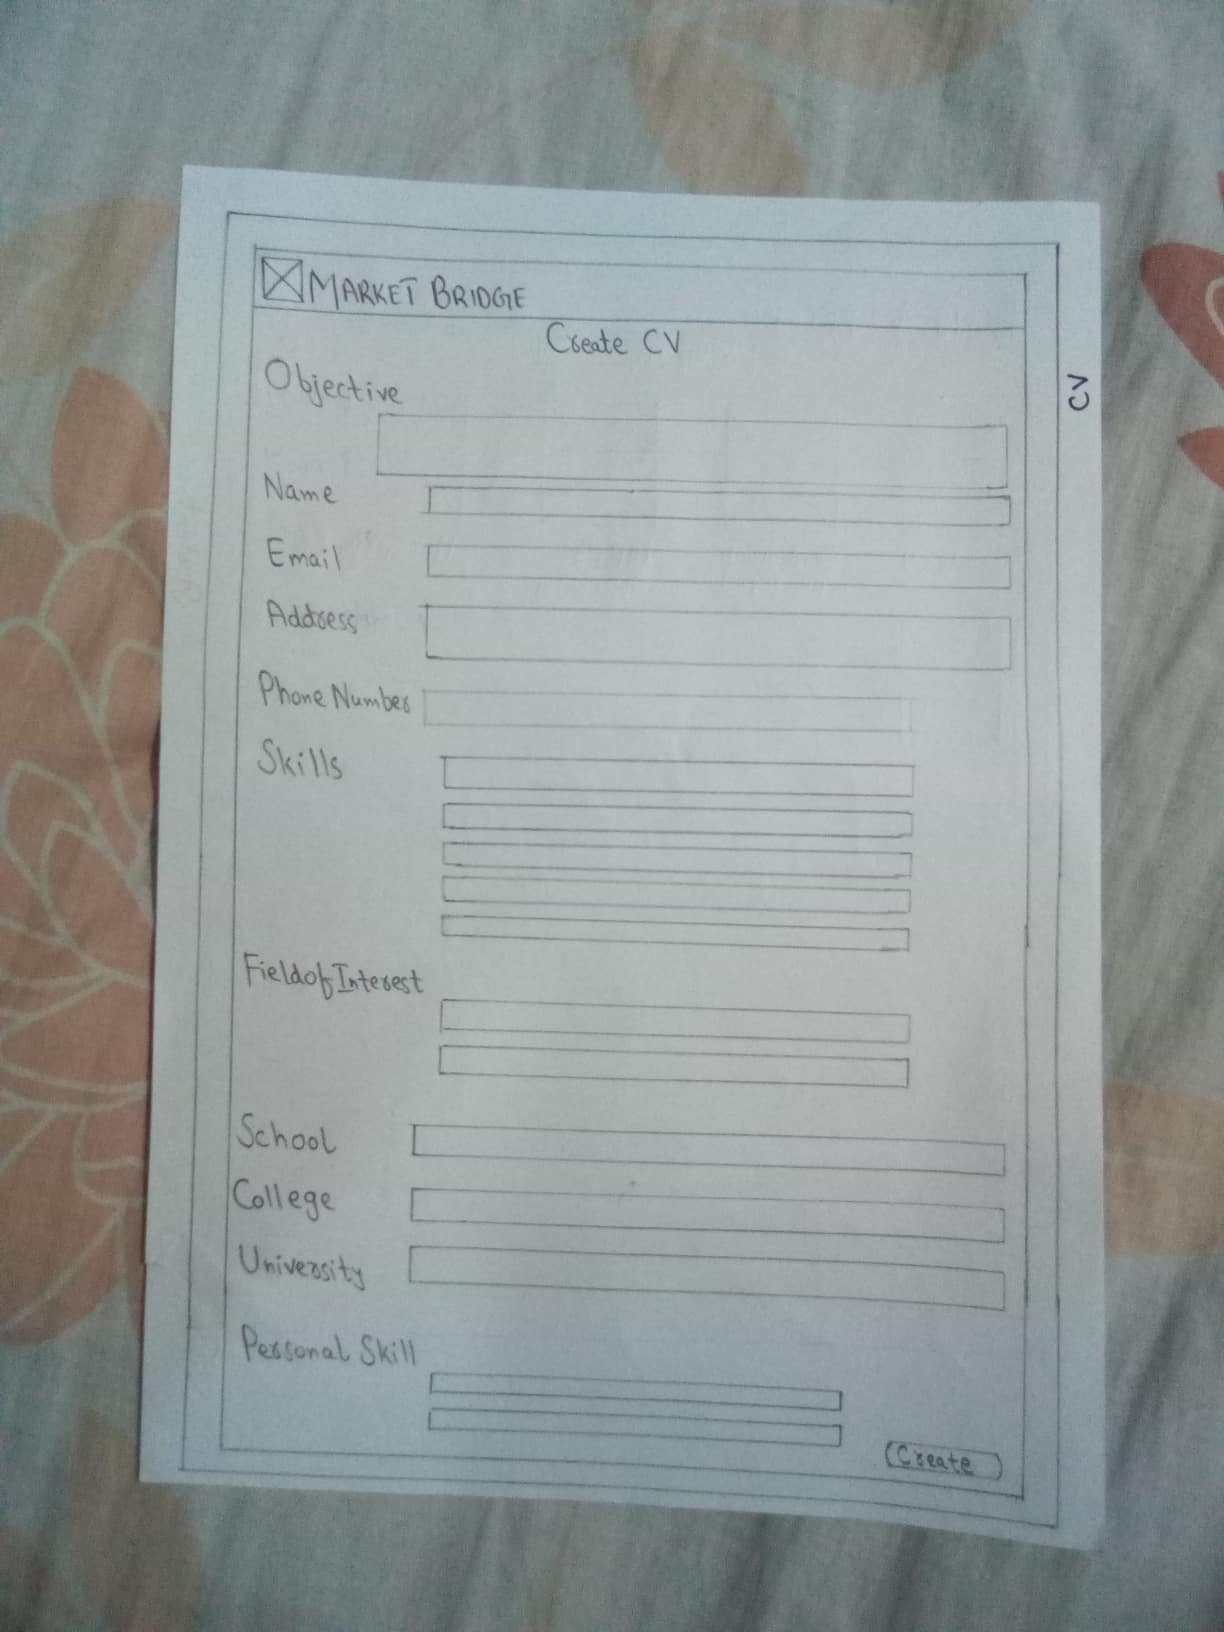 MARKET BRIDGE
Create CV
CV
Objective
Name
Email
Address
Phone Number
Skills
Field of Interest
School
College
University
Personal Skill
Create